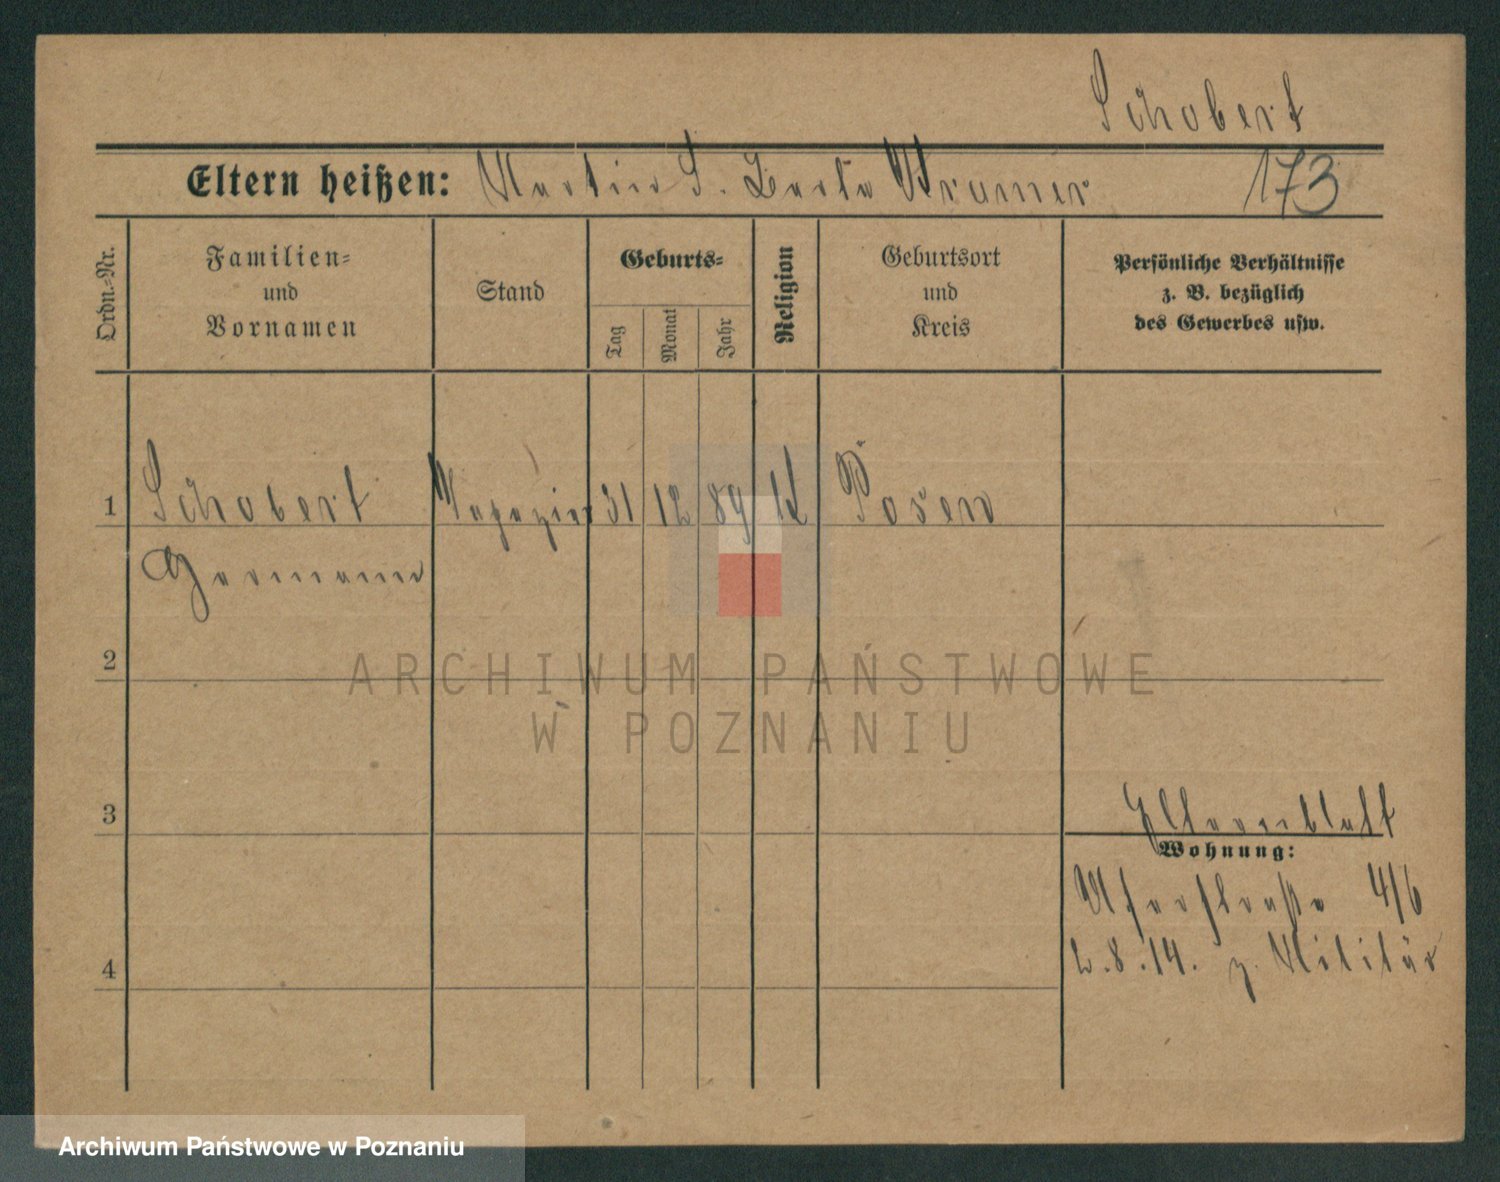 Schobert
Eltern heißen: Martin S. Berta Kramer 173
Ordn.-Nr.
Familien-
und
Vornamen
Stand
Geburts-
Tag
Monat
Jahr
Religion
Geburtsort
und
Kreis
Persönliche Verhältnisse
z. B. bezüglich
des Gewerbes usw.
1 Schobert 31 12 89 K Posen
Hermann
2
ARCHIWUM PAŃSTWOWE
W POZNANIU
3
Elternblatt
Wohnung:
Uferstraße 4/6
2.8.14. z. Militär
4
Archiwum Państwowe w Poznaniu